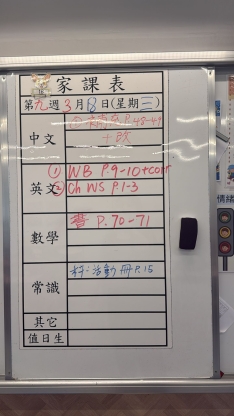 家課表
第九週3月18日(星期三)
中文 P.48-49
+改
英文 ① WB P.9-10+corr
② Ch WS P.1-3
數學 書 P.70-71
常識 科:活動冊P.15
其它
值日生
情緒